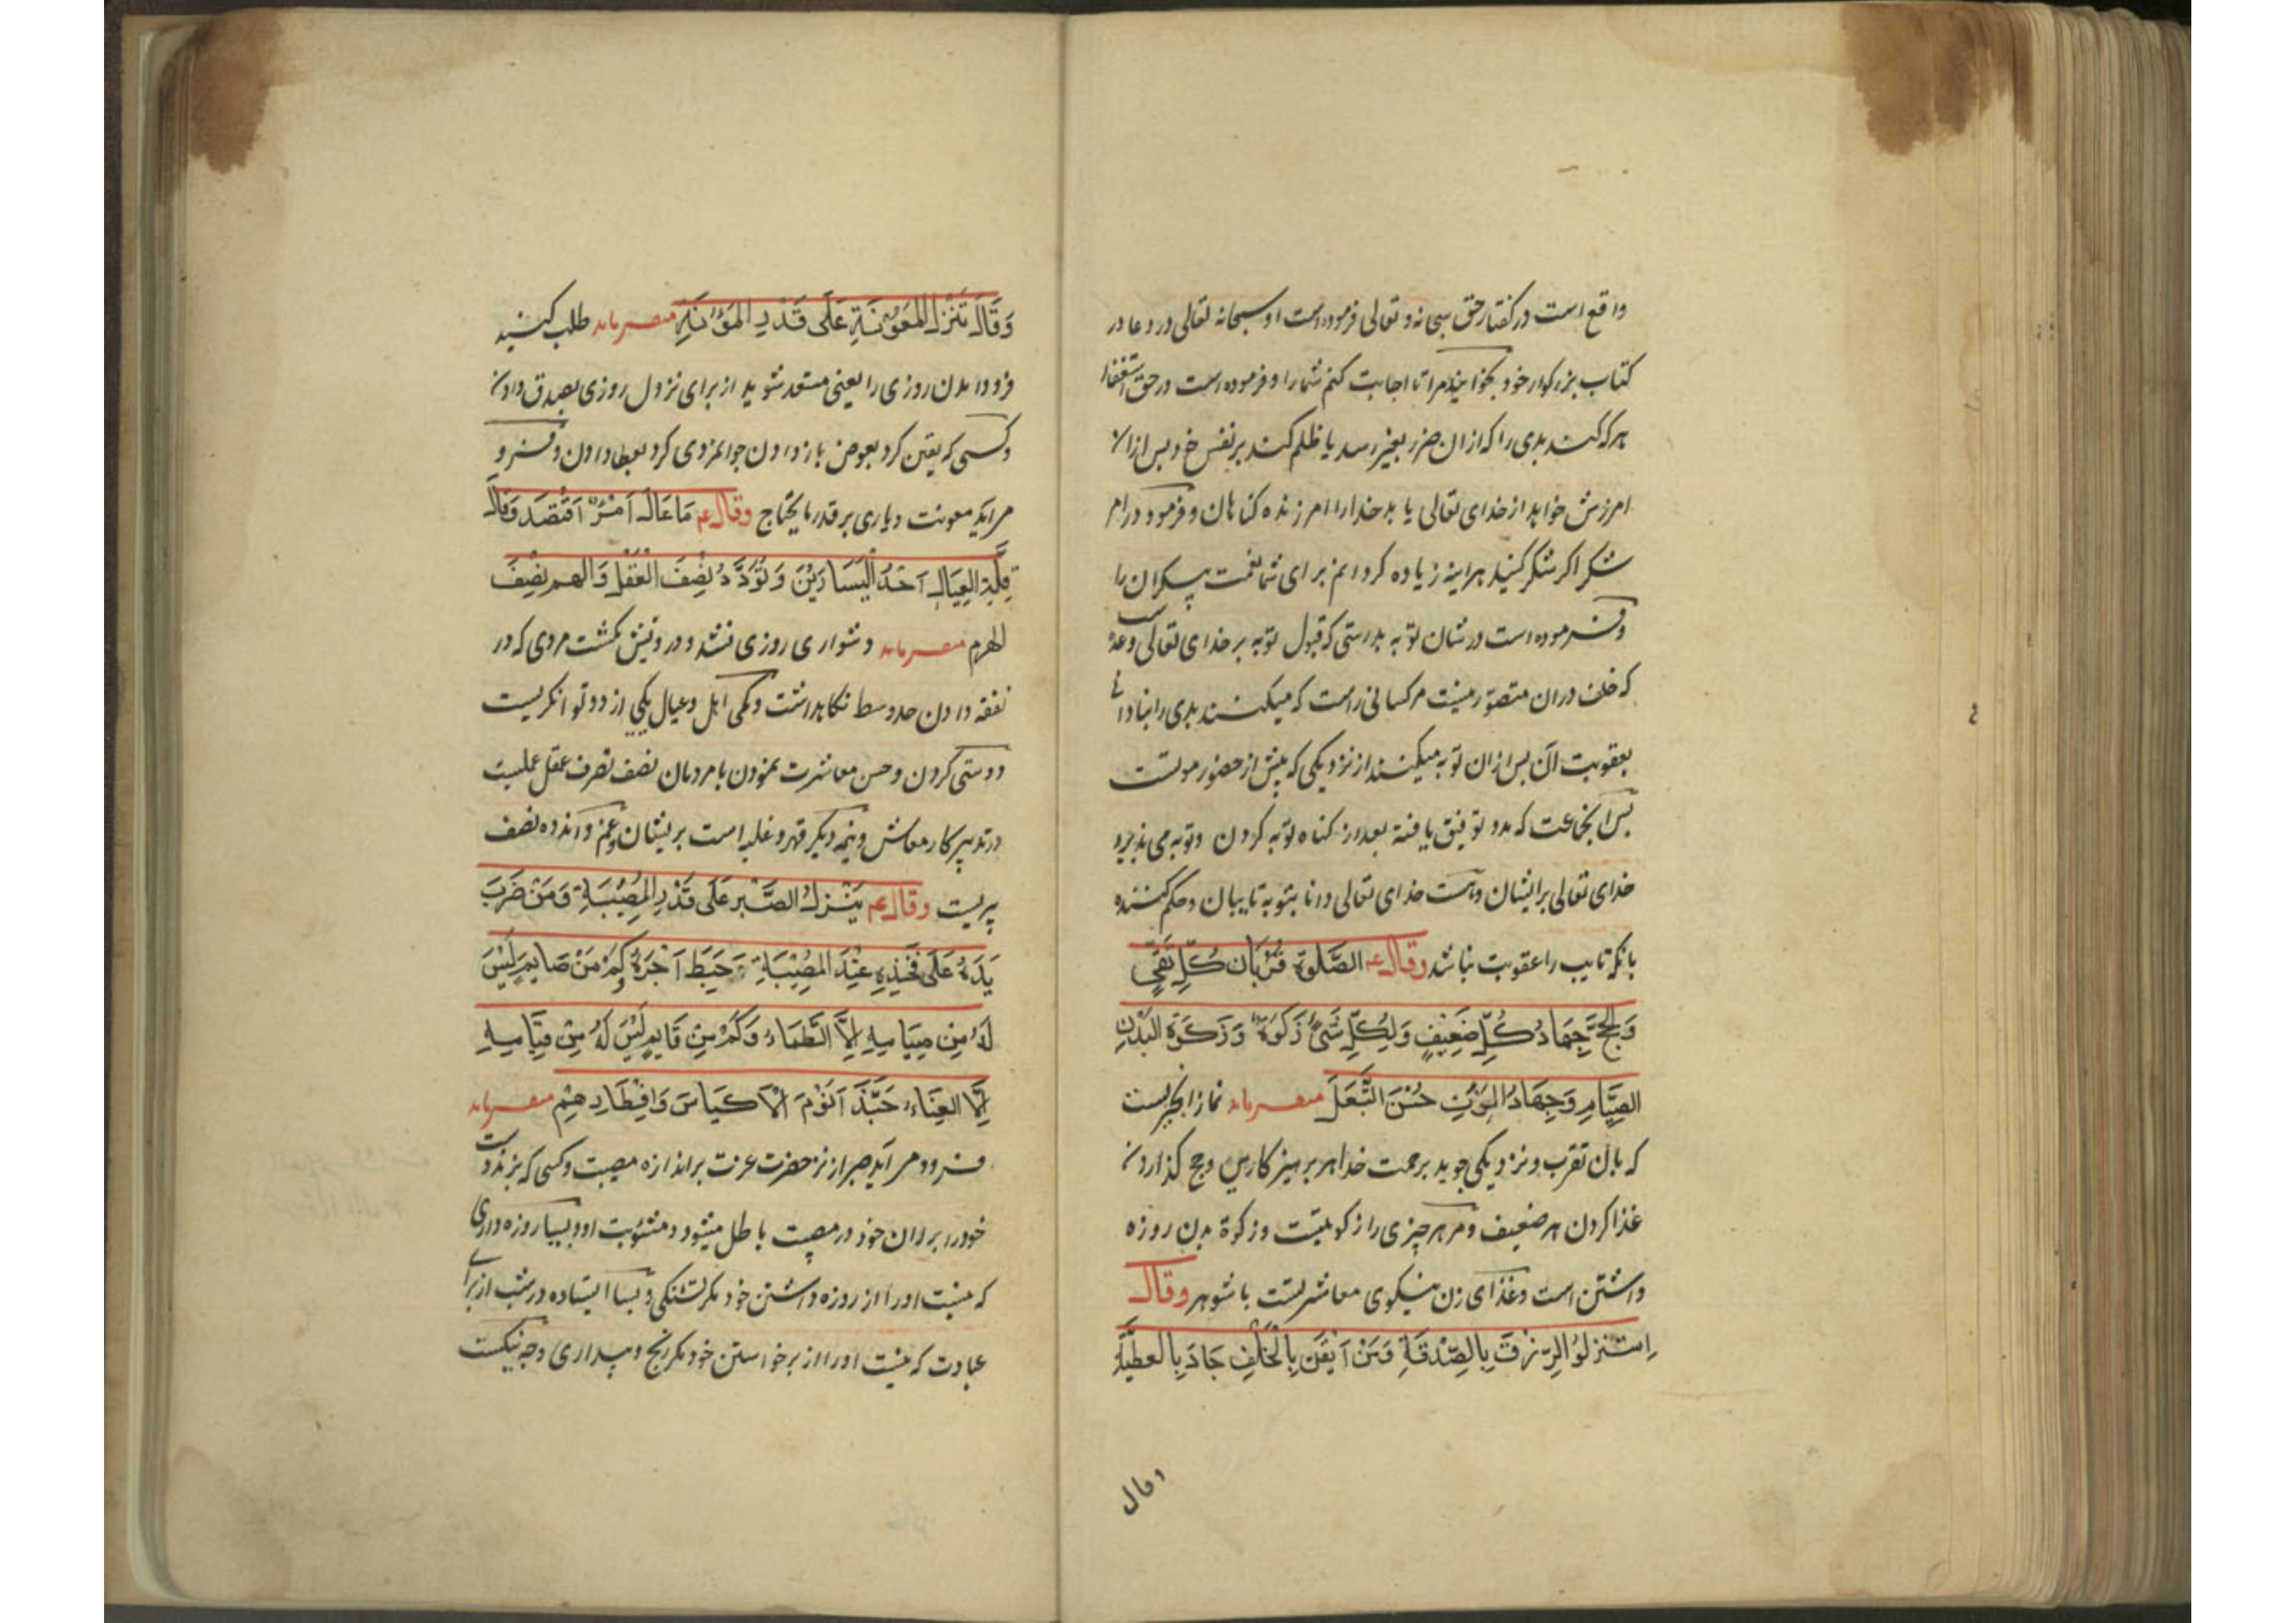 واقع است در کفتار حق سبحانه و تعالی فرموده است او سبحانه تعالی در دعا در
کتاب بزرکوار خود بخوانید مرا تا اجابت کنم شما را و فرموده است در حق استغفار
هر که کند بدی را که ازان ضرر بغیر رسد یا ظلم کند بر نفس خ و بس ازان
امرزش خواهد از خدای تعالی یابد خدا را امرزنده کناهان و فرمود در امر
شکر اکر شکر کنید هراینه زیاده کردانم برای شما نعمت بیکران را
و فرموده است در شان توبه بدرستی که قبول توبه بر خدای تعالی وعده
که خلف دران متصور نیست مر کسانی راست که میکنند بدی را بنادانی
بعقوبت آن بس ازان توبه میکنند از نزدیکی که پیش از حضور موتست
بس انجماعت که مدد توفیق یافته بعد از کناه توبه کردن و توبه می پذیرد
خدای تعالی بر ایشان و است خدای تعالی دانا بتوبه تایبان و حکم کننده
بانکه تایب را عقوبت نباشد وقال عم الصَّلوة قُرْبَان كُلِّ تَقِيٍّ
وَالحَجَّ جِهَادُ كُلِّ ضَعِيْفٍ وَلِكُلِّ شَيْءٍ زَكوةٌ وَزَكَوة البَدَنِ
الصِّيَامِ وَجِهَادُ المَرْئةِ حُسْنَ التَّبَعَلَ میفرماید نماز انجیزیست
که بان تقرب و نزدیکی جوید برحمت خدا هر برهیزکار بس و حج کذاردن
غذا کردن هر ضعیف و مر هر چیزی را زکوتیست و زکوة بدن روزه
داشتن است و غذای زن نیکوی معاشرتست با شوهر وقال
اِسْتَنْزِلُوا الرِّزْقَ بِالصِّدْقَةِ وَمَنْ اَيْقَنَ بِالخَلْفِ جَادَ بِالعطِيَّةِ
وقال
وَقَالَ تَنْزِلُ المَعُوْنَةِ عَلَى قَدْرِ المَؤُنَةِ میفرماید طلب کنید
فرود امدن روزی را یعنی مستعد شوید از برای نزول روزی بصدق دادن
و کسی که یقین کرد بعوض باز دادن جوانمردی کرد بعطا دادن و فرو
مراید معونت و یاری بر قدر ما یحتاج وقال عم مَا عَالَ اَمْرُءٌ اَقْتَصَدَ وَقَالَ
قِلَّةِ العِيَالِ اَحَدُ اليَسَارَيْنَ وَتُوَدَّدُ نِصْفَ العَقْلِ وَالهم نِصْفَ
الهرم میفرماید دشواری روزی نشد و درویش نکشت مردی که در
نفقه دادن حد وسط نکاهداشت و کمی اهل و عیال یکی از دو توانکریست
دوستی کردن و حسن معاشرت نمودن با مردمان نصف تصرف عقل عملیست
در تدبیر کار معاش و نیمه دیکر قهر و غلبه است بر ایشان و غم و اندوه نصف
پریست وقال عم يَنْزِلُ الصَّبْرَ عَلَى قَدْرِ المُصِيْبَةِ وَمَنْ ضَرَبَ
يَدَهُ عَلَى فَخِذِهِ عِنْدَ المُصِيْبَةِ حَبَطَ اَجْرَهُ وكَمْ مَنْ صَايِمٍ لَيْسَ
لَهُ مِن صِيَامِهِ اِلَّا الظَمَاءُ وَكَمْ مِنِ قَايِمٍ لَيْسَ لَهُ مِنْ قِيَامِهِ
اِلَّا العِنَاءُ حَبَّذَ اَنَوْمَ الْاَكيَاسَ وَاِفْطَارِهِمْ میفرماید
فرود مراید صبر از نزد حضرت عزت بر اندازه مصیبت و کسی که بزند دست
خود را بر ران خود در مصیبت باطل میشود مثوبت او و بسیا روزه داری
که نیست او را از روزه داشتن خود مکر تشنکی و بسا ایستاده در شب از برای
عبادت که نیست او را از برخواستن خود مکر رنج و بیداری و چه نیکست